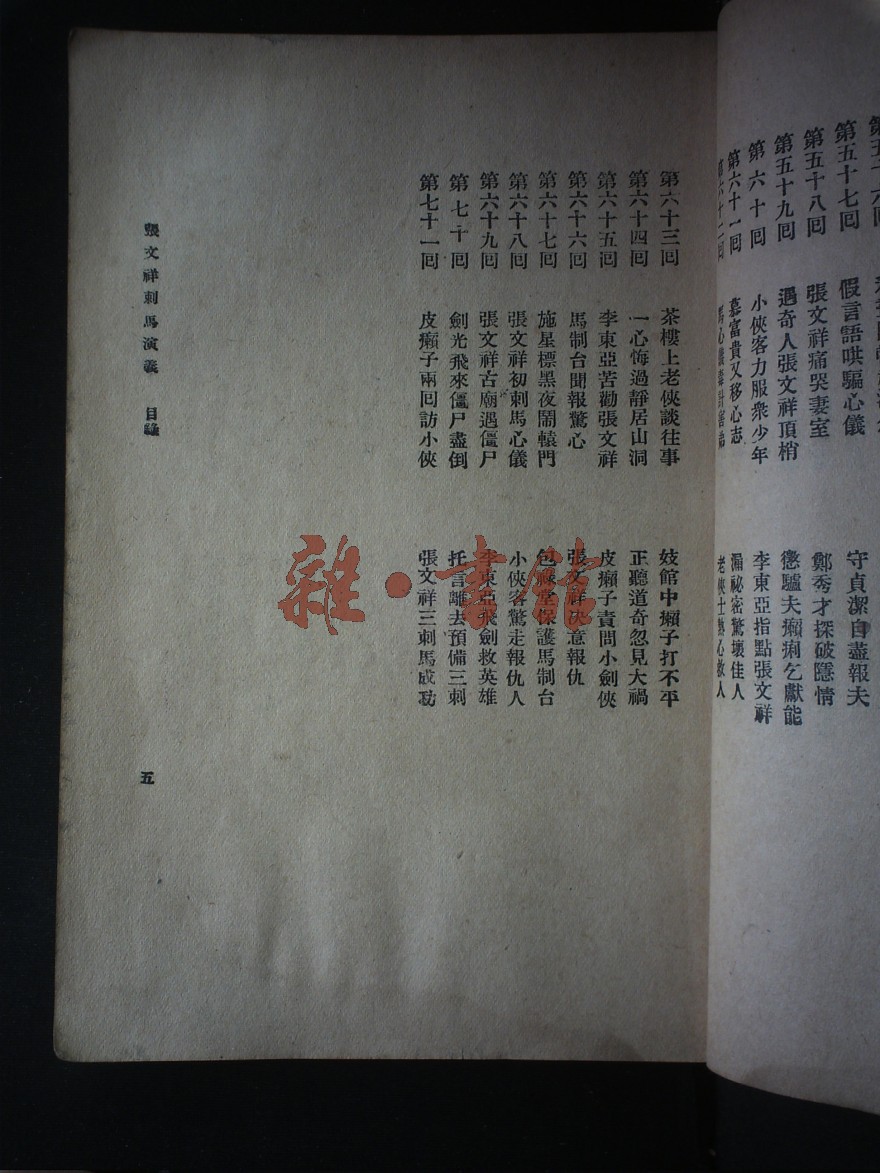 第五十七回 假言語哄騙心儀 守貞潔自盡報夫
第五十八回 張文祥痛哭妻室 鄭秀才探破隱情
第五十九回 遇奇人張文祥頂梢 懲驢夫癩痢乞獻能
第六十回 小俠客力服衆少年 李東亞指點張文祥
第六十一回 慕富貴又移心志 漏祕密驚壞佳人
第六十二回 馬心儀 計害弟 老俠士熱心救人
第六十三回 茶樓上老俠談往事 妓館中癩子打不平
第六十四回 一心悔過靜居山洞 正聽道奇忽見大禍
第六十五回 李東亞苦勸張文祥 皮癩子責問小劍俠
第六十六回 馬制台聞報驚心 張文祥決意報仇
第六十七回 施星標黑夜鬧轅門 包祿堂保護馬制台
第六十八回 張文祥初刺馬心儀 小俠客驚走報仇人
第六十九回 張文祥古廟遇僵尸 李東亞飛劍救英雄
第七十回 劍光飛來僵尸盡倒 托言離去預備三刺
第七十一回 皮癩子兩回訪小俠 張文祥三刺馬成功
張文祥刺馬演義 目錄
五
雜·書館